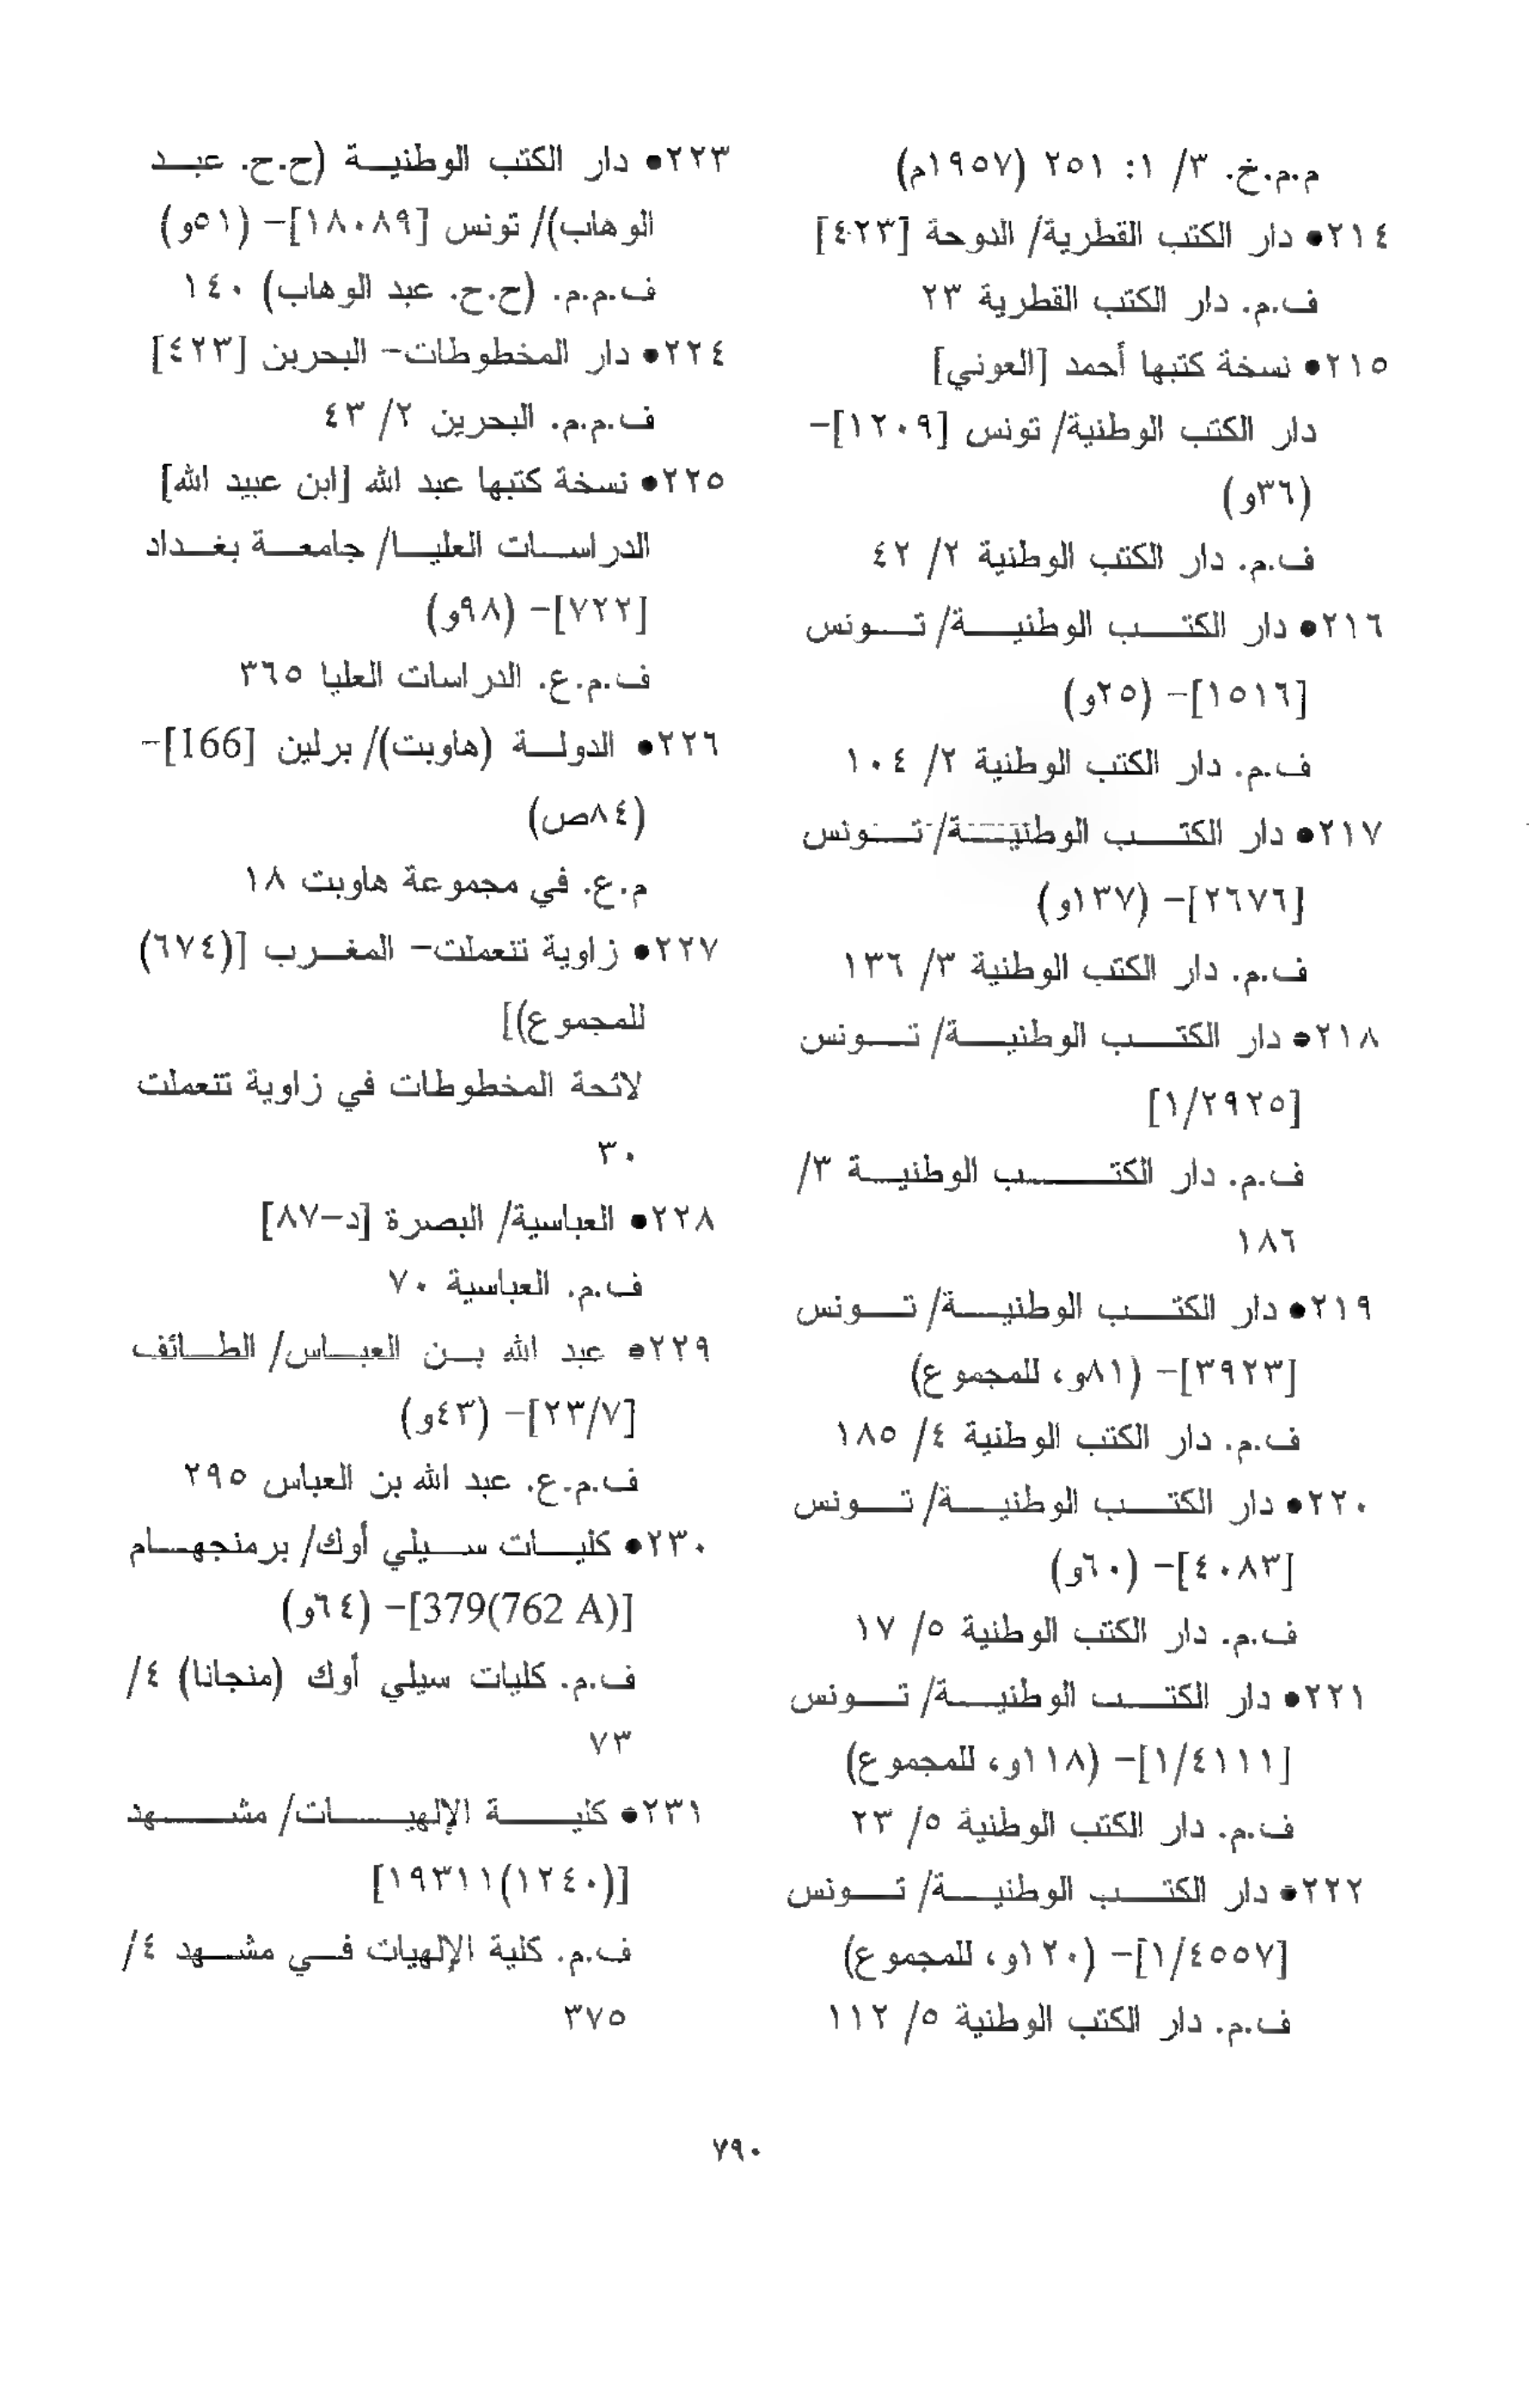 م.م.خ. ٣/ ١: ٢٥١ (١٩٥٧م)
٢١٤• دار الكتب القطرية/ الدوحة [٤٢٣]
ف.م. دار الكتب القطرية ٢٣
٢١٥• نسخة كتبها أحمد [العوني]
دار الكتب الوطنية/ تونس [١٢٠٩]-
(٣٦و)
ف.م. دار الكتب الوطنية ٢/ ٤٢
٢١٦• دار الكتب الوطنية/ تونس
[١٥١٦]- (٢٥و)
ف.م. دار الكتب الوطنية ٢/ ١٠٤
٢١٧• دار الكتب الوطنية/ تونس
[٢٦٧٦]- (١٣٧و)
ف.م. دار الكتب الوطنية ٣/ ١٣٦
٢١٨• دار الكتب الوطنية/ تونس
[١/٢٩٢٥]
ف.م. دار الكتب الوطنية ٣/
١٨٦
٢١٩• دار الكتب الوطنية/ تونس
[٣٩٢٣]- (٨١و، للمجموع)
ف.م. دار الكتب الوطنية ٤/ ١٨٥
٢٢٠• دار الكتب الوطنية/ تونس
[٤٠٨٣]- (٦٠و)
ف.م. دار الكتب الوطنية ٥/ ١٧
٢٢١• دار الكتب الوطنية/ تونس
[١/٤١١١]- (١١٨و، للمجموع)
ف.م. دار الكتب الوطنية ٥/ ٢٣
٢٢٢• دار الكتب الوطنية/ تونس
[١/٤٥٥٧]- (١٢٠و، للمجموع)
ف.م. دار الكتب الوطنية ٥/ ١١٢
٢٢٣• دار الكتب الوطنية (ح.ح. عبد
الوهاب)/ تونس [١٨٠٨٩]- (٥١و)
ف.م.م. (ح.ح. عبد الوهاب) ١٤٠
٢٢٤• دار المخطوطات- البحرين [٤٢٣]
ف.م.م. البحرين ٢/ ٤٣
٢٢٥• نسخة كتبها عبد الله [ابن عبيد الله]
الدراسات العليا/ جامعة بغداد
[٧٢٢]- (٩٨و)
ف.م.ع. الدراسات العليا ٣٦٥
٢٢٦• الدولة (هاوبت)/ برلين [166]-
(٨٤ص)
م.ع. في مجموعة هاوبت ١٨
٢٢٧• زاوية تنعملت- المغرب [(٦٧٤)
للمجموع)]
لائحة المخطوطات في زاوية تنعملت
٣٠
٢٢٨• العباسية/ البصرة [د-٨٧]
ف.م. العباسية ٧٠
٢٢٩• عبد الله بن العباس/ الطائف
[٢٣/٧]- (٤٣و)
ف.م.ع. عبد الله بن العباس ٢٩٥
٢٣٠• كليات سيلي أوك/ برمنجهام
[379(762 A)]- (٦٤و)
ف.م. كليات سيلي أوك (منجانا) ٤/
٧٣
٢٣١• كلية الإلهيات/ مشهد
[١٩٣١١(١٢٤٠)]
ف.م. كلية الإلهيات في مشهد ٤/
٣٧٥
٧٩٠